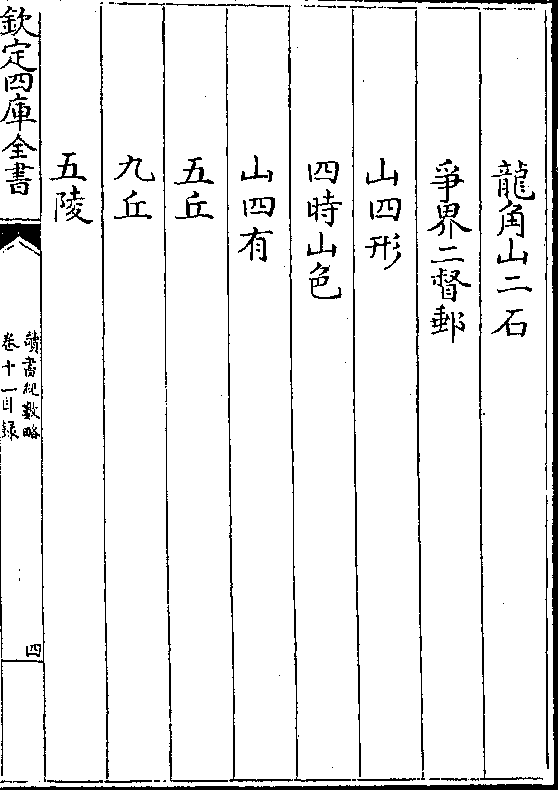 龍角山二石
爭界二督郵
山四形
四時山色
山四有
五丘
九丘
五陵
欽定四庫全書
讀書紀數略
卷十一目錄
四